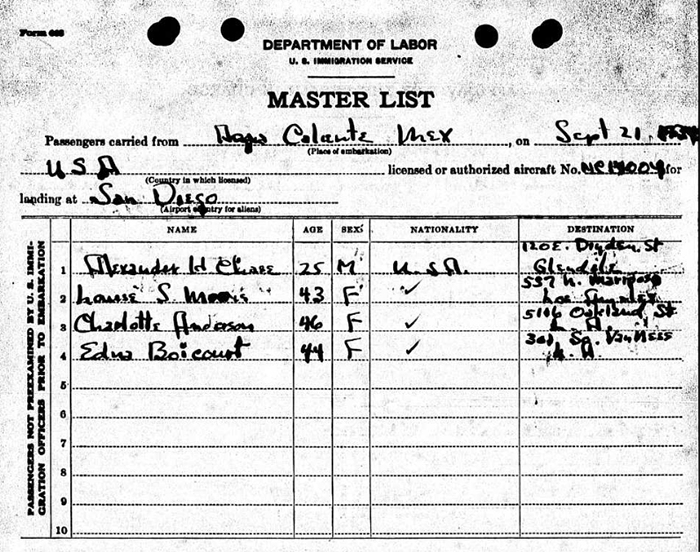 Form
DEPARTMENT OF LABOR
U. S. IMMIGRATION SERVICE
MASTER LIST
Passengers carried from Agua Calante Mex, on Sept 21,
(Place of embarkation)
U S A licensed or authorized aircraft No. NC14004 for
(Country in which licensed)
landing at San Diego
(Airport of entry for aliens)
PASSENGERS NOT PREEXAMINED BY U. S. IMMI-
GRATION OFFICERS PRIOR TO EMBARKATION
NAME AGE SEX NATIONALITY DESTINATION
120 E. Dryden St
1 Alexander H Chase 25 M U.S.A. Glendale
537 N. Mariposa
2 S. 43 F ✓ Los Angeles
5116 Oakland St
3 Charlotte Anderson 46 F ✓ L. A.
So. Van Ness
4 Edna Boicourt 44 F ✓ L. A.
5
6
7
8
9
10